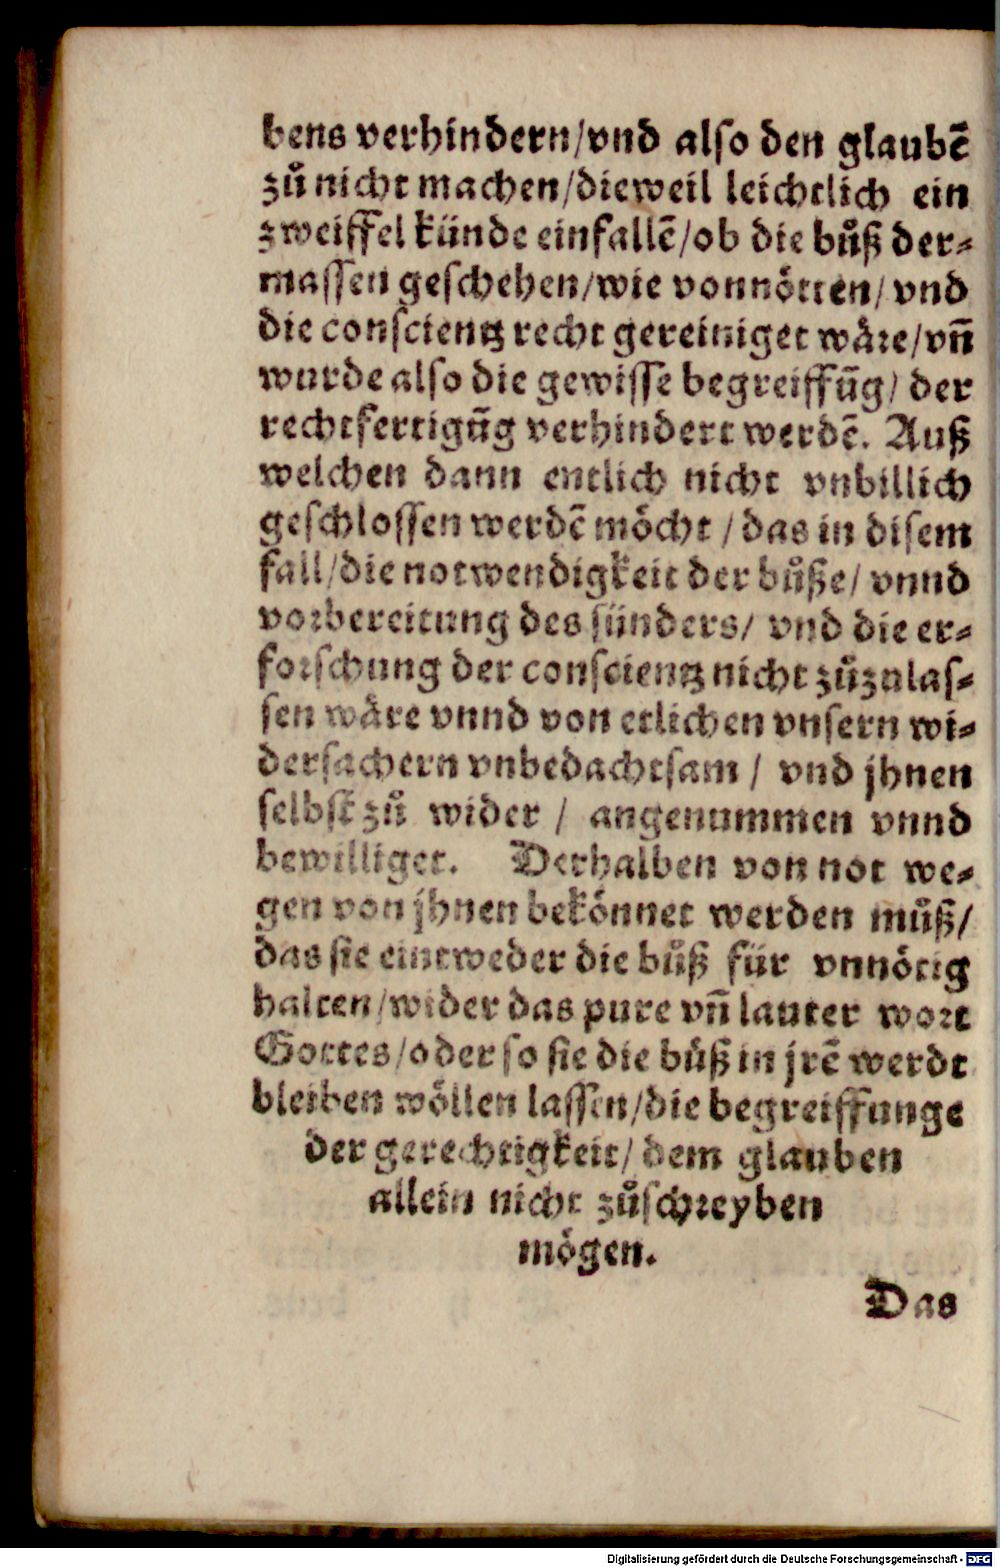 bens verhindern/vnd also den glaubē
zů nicht machen/dieweil leichtlich ein
zweiffel künde einfallē/ob die bůß der-
massen geschehen/wie vonnötten/ vnd
die conscientz recht gereiniget wäre/vñ
wurde also die gewisse begreiffūg/ der
rechtfertigūg verhindert werdē. Auß
welchen dann entlich nicht vnbillich
geschlossen werdē möcht / das in disem
fall/die notwendigkeit der bůße/ vnnd
vorbereitung des sünders/ vnd die er-
forschung der conscientz nicht zůzulas-
sen wäre vnnd von etlichen vnsern wi-
dersachern vnbedachtsam / vnd jhnen
selbst zů wider / angenummen vnnd
bewilliget. Derhalben von not we-
gen von jhnen bekönnet werden můß/
das sie eintweder die bůß für vnnötig
halten/wider das pure vñ lauter wort
Gottes/oder so sie die bůß in jrē werdt
bleiben wöllen lassen/die begreiffunge
der gerechtigkeit/ dem glauben
allein nicht zůschreyben
mögen.
Das
Digitalisierung gefördert durch die Deutsche Forschungsgemeinschaft - DFG